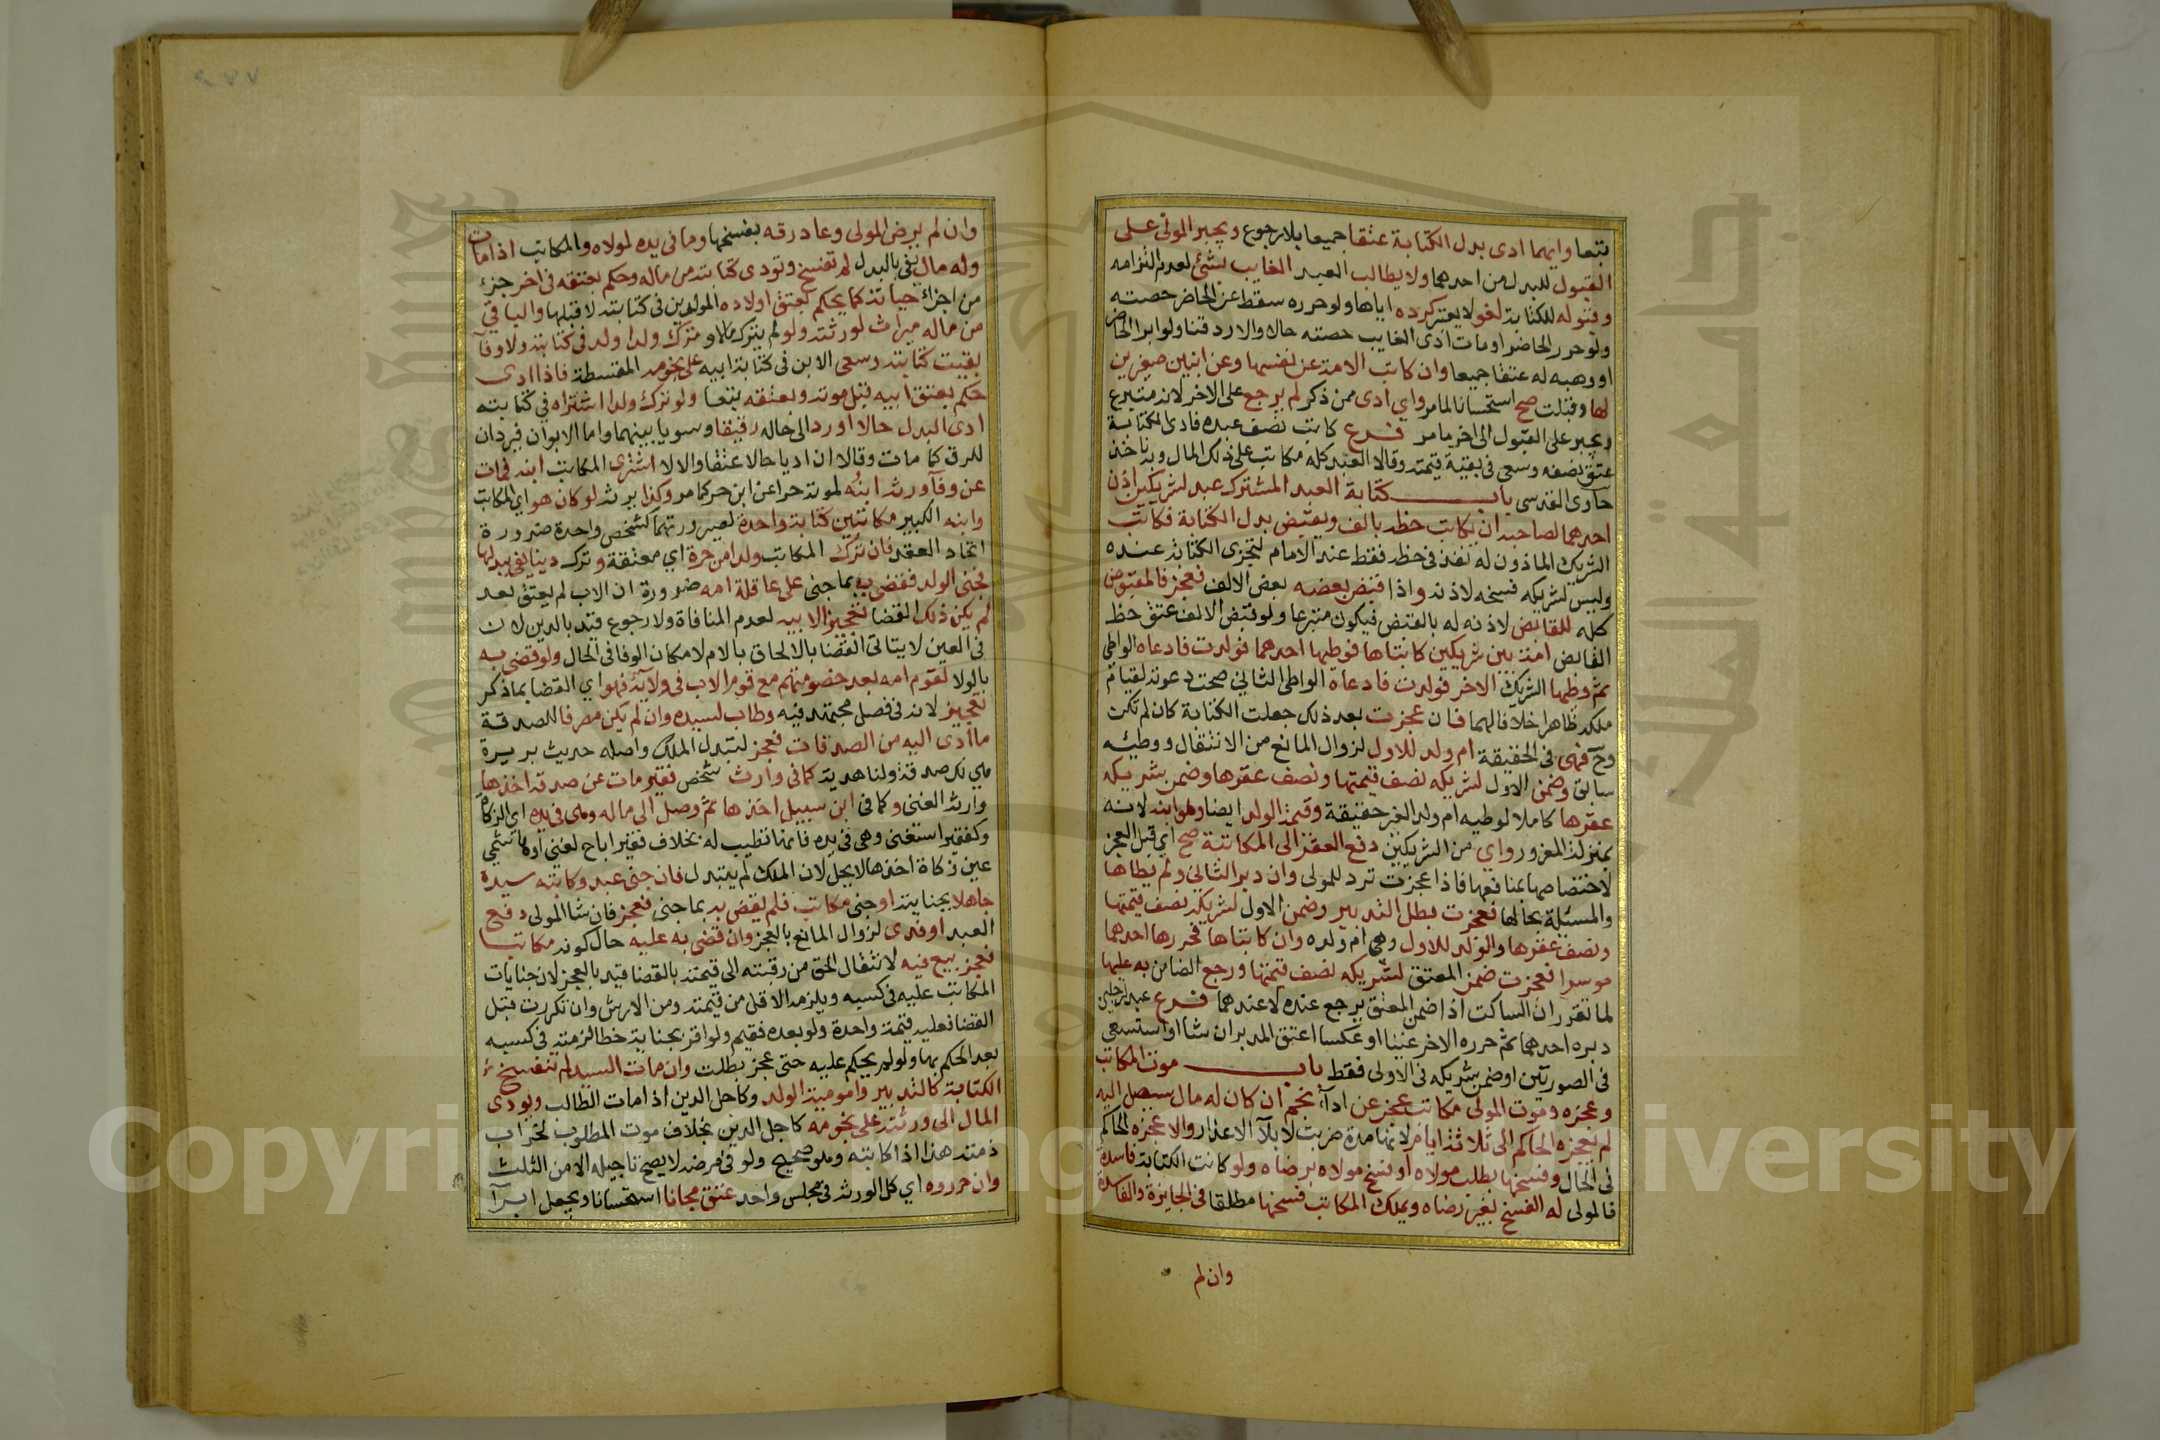 تبعا وايهما ادى بدل الكتابة عتقا جميعا بلا رجوع ويجبر المولى على
القبول للبدل من احدهما ولا يطالب العبد الغايب بشئ لعدم التزامه
وقبوله للكتابة لغو لا يعتبر كرده اياها ولو حرره سقط عن الحاضر حصته
ولو حرر الحاضر او مات ادى الغايب حصته حالا والا رد قنا ولو ابرا الحاضر
او وهبه له عتقا جميعا وان كاتب الامة عن نفسها وعن ابنين صغيرين
لها وقبلت صح استحسانا لما مر واي ادى ممن ذكر لم يرجع على الاخر لانه متبرع
ويجبر على القبول الى اخر ما مر فرع كاتب نصف عبده فادى الكتابة
عتق نصفه وسعى في بقية قيمته وقالا العبد كله مكاتب على ذلك المال وبه ناخذ
حاوى القدسى باب كتابة العبد المشترك عبد لشريكين اذن
احدهما لصاحبه ان يكاتب حظه بالف ويقبض بدل الكتابة فكاتب
الشريك الماذون له نفذ في حظه فقط عند الامام لتجزى الكتابة عنده
وليس لشريكه فسخه لاذنه واذا قبض بعضه بعض الالف فعجز فالمقبوض
كله للقابض لاذنه له بالقبض فيكون متبرعا ولو قبض الالف عتق حظ
القابض امة بين شريكين كاتباها فوطيها احدهما فولدت فادعاه الواطى
ثم وطيها الشريك الاخر فولدت فادعاه الواطى الثانى صحت دعوته لقيام
ملكه ظاهرا خلافا لهما فان عجزت بعد ذلك جعلت الكتابة كان لم تكن
وح فهى في الحقيقة ام ولد للاول لزوال المانع من الانتقال ووطئه
سابق وضمن الاول لشريكه نصف قيمتها ونصف عقرها وضمن شريكه
عقرها كاملا لوطيه ام ولد الغير حقيقة وقيمة الولد ايضا وهو ابنه لانه
بمنزلة المغرور واي من الشريكين دفع العقر الى المكاتبة صح اي قبل العجز
لاختصاصها بمنافعها فاذا عجزت ترد للمولى وان دبر الثانى ولم يطاها
والمسئلة بحالها فعجزت بطل التدبير وضمن الاول لشريكه نصف قيمتها
ونصف عقرها والولد للاول وهي ام ولده وان كاتباها فحررها احدهما
موسرا فعجزت ضمن المعتق لشريكه نصف قيمتها ورجع الضامن به عليها
لما تقرر ان الساكت اذا ضمن المعتق يرجع عنده لا عندهما فرع عبد لرجلين
دبره احدهما ثم حرره الاخر غنيا او عكسا اعتق المدبر ان شا او استسعى
في الصورتين او ضمن شريكه في الاولى فقط باب موت المكاتب
وعجزه وموت المولى مكاتب عجز عن اداء نجم ان كان له مال سيصل اليه
لم يعجزه الحاكم الى ثلاثة ايام لانها مدة ضربت لابلاء الاعذار والا عجزه الحاكم
في الحال وفسخها بطلب مولاه او فسخ مولاه برضاه ولو كانت الكتابة فاسدة
فالمولى له الفسخ بغير رضاه ويملك المكاتب فسخها مطلقا في الجايزة والفاسدة
وان لم
وان لم يرض المولى وعاد رقه بفسخها وما في يده لمولاه والمكاتب اذا مات
وله مال يفى بالبدل لم تفسخ وتودى كتابته من ماله وحكم بعتقه في اخر جزء
من اجزاء حياته كما يحكم بعتق اولاده المولودين في كتابته لا قبلها والباقي
من ماله ميراث لورثته ولو لم يترك مالا وترك ولدا ولد في كتابته ولا وفآ
بقيت كتابته وسعى الابن في كتابة ابيه على نجومه المقسطة فاذا ادى
حكم بعتق ابيه قبل موته وبعتقه تبعا ولو ترك ولدا اشتراه في كتابته
ادى البدل حالا او رد الى حاله رقيقا وسويا بينهما واما الابوان فيردان
للرق كما مات وقالا ان اديا حالا عتقا والا لا اشترى المكاتب ابنه فمات
عن وفآ ورثه ابنه لموته حرا عن ابن حر كما مر وكذا يرثه لو كان هو اي المكاتب
وابنه الكبير مكاتبين كتابة واحدة لصيرورتهما كشخص واحد ضرورة
اتحاد العقد فان ترك المكاتب ولدا من حرة اي معتقة وترك دينا يفى ببدلها
فجنى الولد فقضى به بما جنى على عاقلة امه ضرورة ان الاب لم يعتق بعد
لم يكن ذلك القضا تعجيزا لابيه لعدم المنافاة ولا رجوع قيد بالدين لان
في العين لا يتاتى القضا بالالحاق بالام لامكان الوفا في الحال ولو قضى به
بالولا لقوم امه بعد خصومتهم مع قوم الاب في ولايه فهو اي القضا بما ذكر
تعجيز لانه في فصل مجتهد فيه وطاب لسيده وان لم يكن مصرفا للصدقة
ما ادى اليه من الصدقات فعجز لتبدل الملك واصله حديث بريرة
هي لك صدقة ولنا هدية كما في وارث شخص فقير مات عن صدقة اخذها
وارثه الغنى وكما في ابن سبيل اخذها ثم وصل الى ماله وهى في يده اي الزكاة
وكفقير استغنى وهى في يده فانها تطيب له بخلاف فقير اباح لغني او هاشمي
عين زكاة اخذها لا يحل لان الملك لم يتبدل فان جنى عبد وكاتبه سيده
جاهلا بجنايته او جنى مكاتب فلم يقض به بما جنى فعجز فان شا المولى دفع
العبد او فدى لزوال المانع بالعجز وان قضى به عليه حال كونه مكاتبا
فعجز بيع فيه لانتقال الحق من رقبته الى قيمته بالقضا قيد بالعجز لان جنايات
المكاتب عليه في كسبه ويلزمه الاقل من قيمته ومن الارش وان تكررت قبل
القضا فعليه قيمة واحدة ولو بعده فقيم ولو اقر بجناية خطا لزمته في كسبه
بعد الحكم بها ولو لم يحكم عليه حتى عجز بطلت وان مات السيد لم تنفسخ
الكتابة كالتدبير وامومية الولد وكاجل الدين اذا مات الطالب ويودى
المال الى ورثته على نجومه كاجل الدين بخلاف موت المطلوب لخراب
ذمته هذا اذا كاتبه وهو صحيح ولو في مرضه لا يصح تاجيله الا من الثلث
وان حرروه اي كل الورثة في مجلس واحد عتق مجانا استحسانا ويجعل ابرآ
Copyright © King Saud University